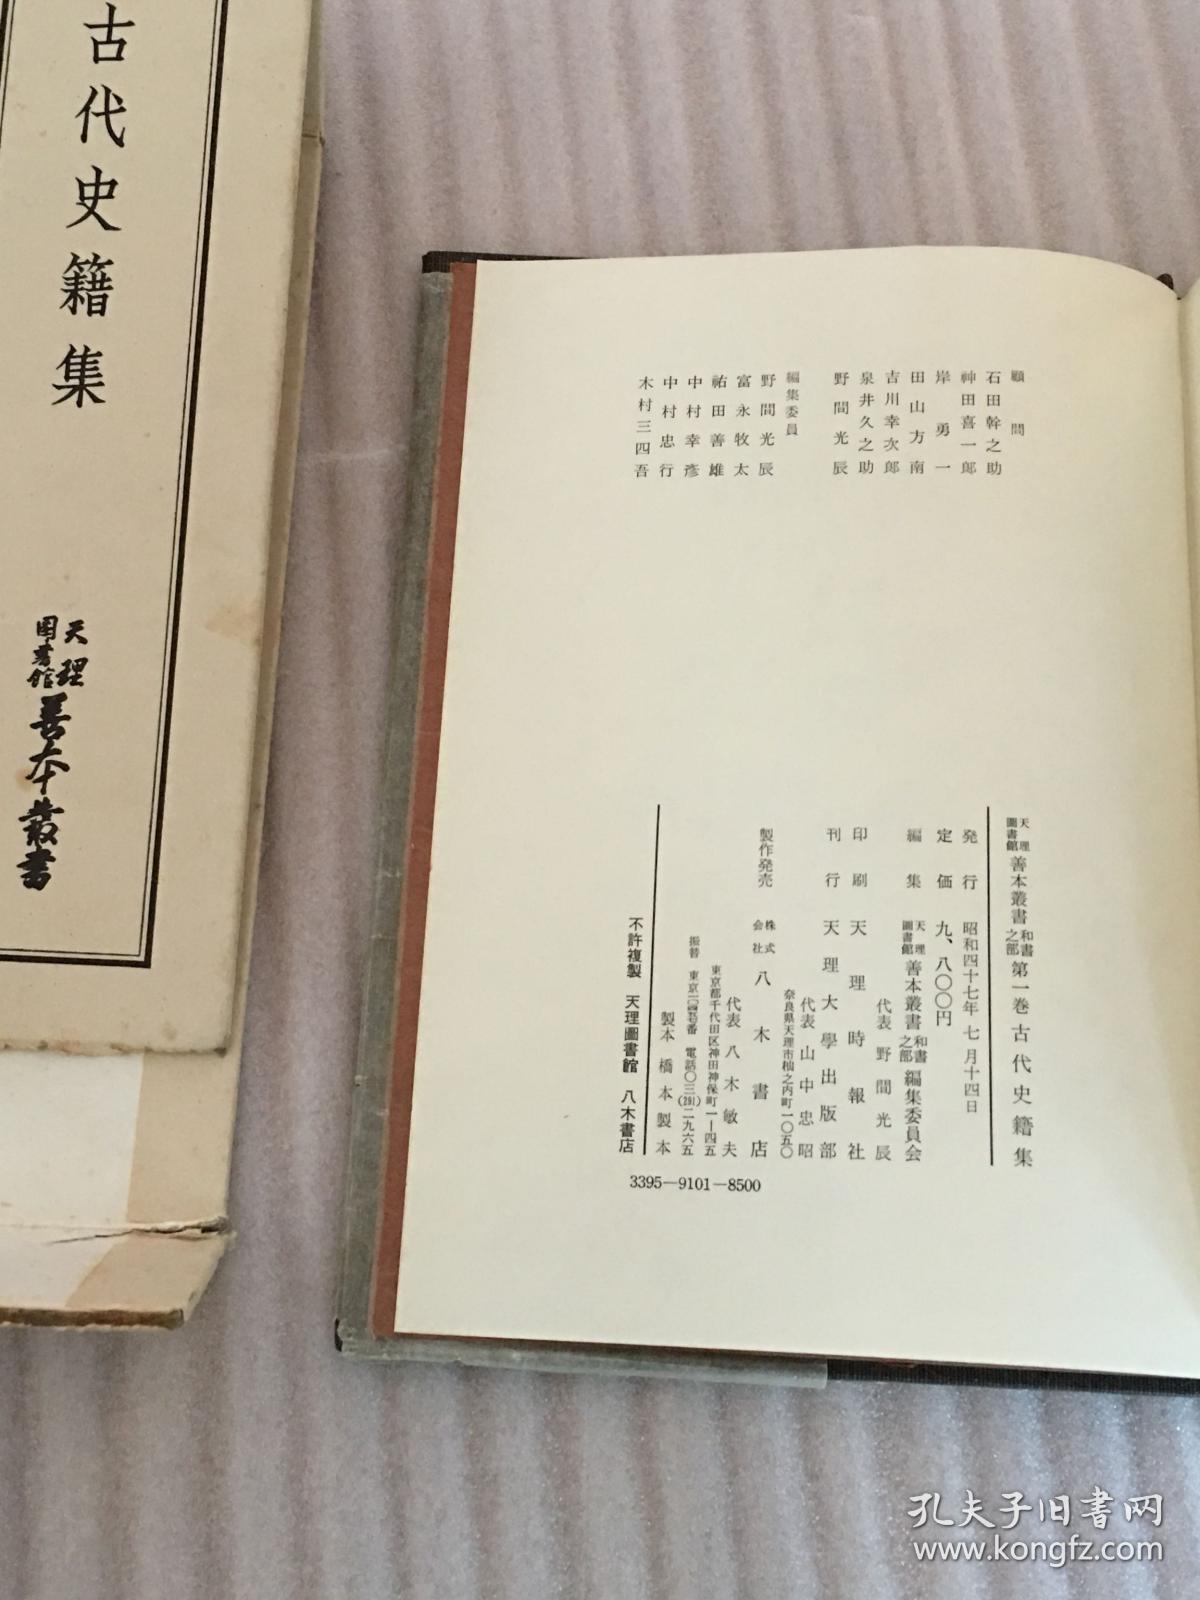 古代史籍集
天理
図書館
善本叢書
顧問
石田幹之助
神田喜一郎
岸勇一
田山方南
吉川幸次郎
泉井久之助
野間光辰
編集委員
野間光辰
富永牧太
祐田善雄
中村幸彦
中村忠行
木村三四吾
天理圖書館善本叢書和書之部第一巻古代史籍集
発行 昭和四十七年七月十四日
定価 九、八〇〇円
編集 天理圖書館善本叢書和書之部編集委員会
代表 野間光辰
印刷 天理時報社
刊行 天理大學出版部
代表 山中忠昭
奈良県天理市杣之内町一〇五〇
製作発売 株式会社八木書店
代表 八木敏夫
東京都千代田区神田神保町一ー四五
電話〇三(291)二九六五
製本 橋本製本
不許複製 天理圖書館 八木書店
3395—9101—8500
孔夫子旧书网
www.kongfz.com